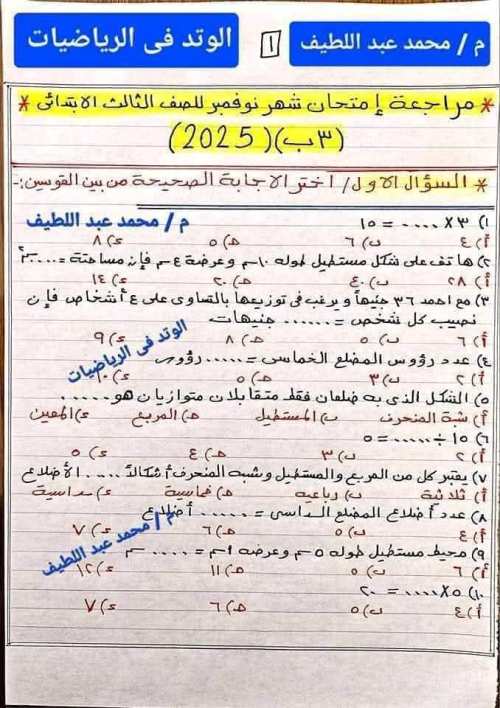 م / محمد عبد اللطيف
١
الوتد فى الرياضيات
* مراجعة إمتحان شهر نوفمبر للصف الثالث الابتدائى *
(٣ب)(2025)
* السؤال الاول/ اختر الاجابة الصحيحة من بين القوسين:-
١) ٣ × ..... = ١٥
م / محمد عبد اللطيف
أ) ٤ ب) ٦ هـ) ٥ ء) ٨
٢) هاتف على شكل مستطيل طوله ١٠سم وعرضة ٤سم فإن مساحتة = ..... سم٢
أ) ٢٨ ب) ٤٠ هـ) ٢٠ ء) ١٤
٣) مع احمد ٣٦ جنيهاً ويرغب فى توزيعها بالتساوى على ٤ أشخاص فإن
نصيب كل شخص = ...... جنيهات
أ) ٦ ب) ٥ هـ) ٨ ء) ٩
الوتد فى الرياضيات
٤) عدد رؤوس المضلع الخماسى = ...... رؤوس
أ) ٢ ب) ٣ هـ) ٥ ء) ١٠
٥) الشكل الذى به ضلعان فقط متقابلان متوازيان هو .....
أ) شبة المنحرف ب) المستطيل هـ) المربع ء) المعين
٦) ١٥ ÷ ...... = ٥
أ) ٢ ب) ٣ هـ) ٤ ء) ٥
٧) يعتبر كل من المربع والمستطيل وشبه المنحرف أشكالاً ..... الأضلاع
أ) ثلاثية ب) رباعية هـ) خماسية ء) سداسية
٨) عدد أضلاع المضلع السداسى = ...... أضلاع
أ) ٤ ب) ٥ هـ) ٦ ء) ٧
م / محمد عبد اللطيف
٩) محيط مستطيل طوله ٥سم وعرضه ١سم = ..... سم
أ) ٦ ب) ٥ هـ) ١١ ء) ١٢
١٠) ٥ × ..... = ٢٠
أ) ٤ ب) ٥ هـ) ٦ ء) ٧